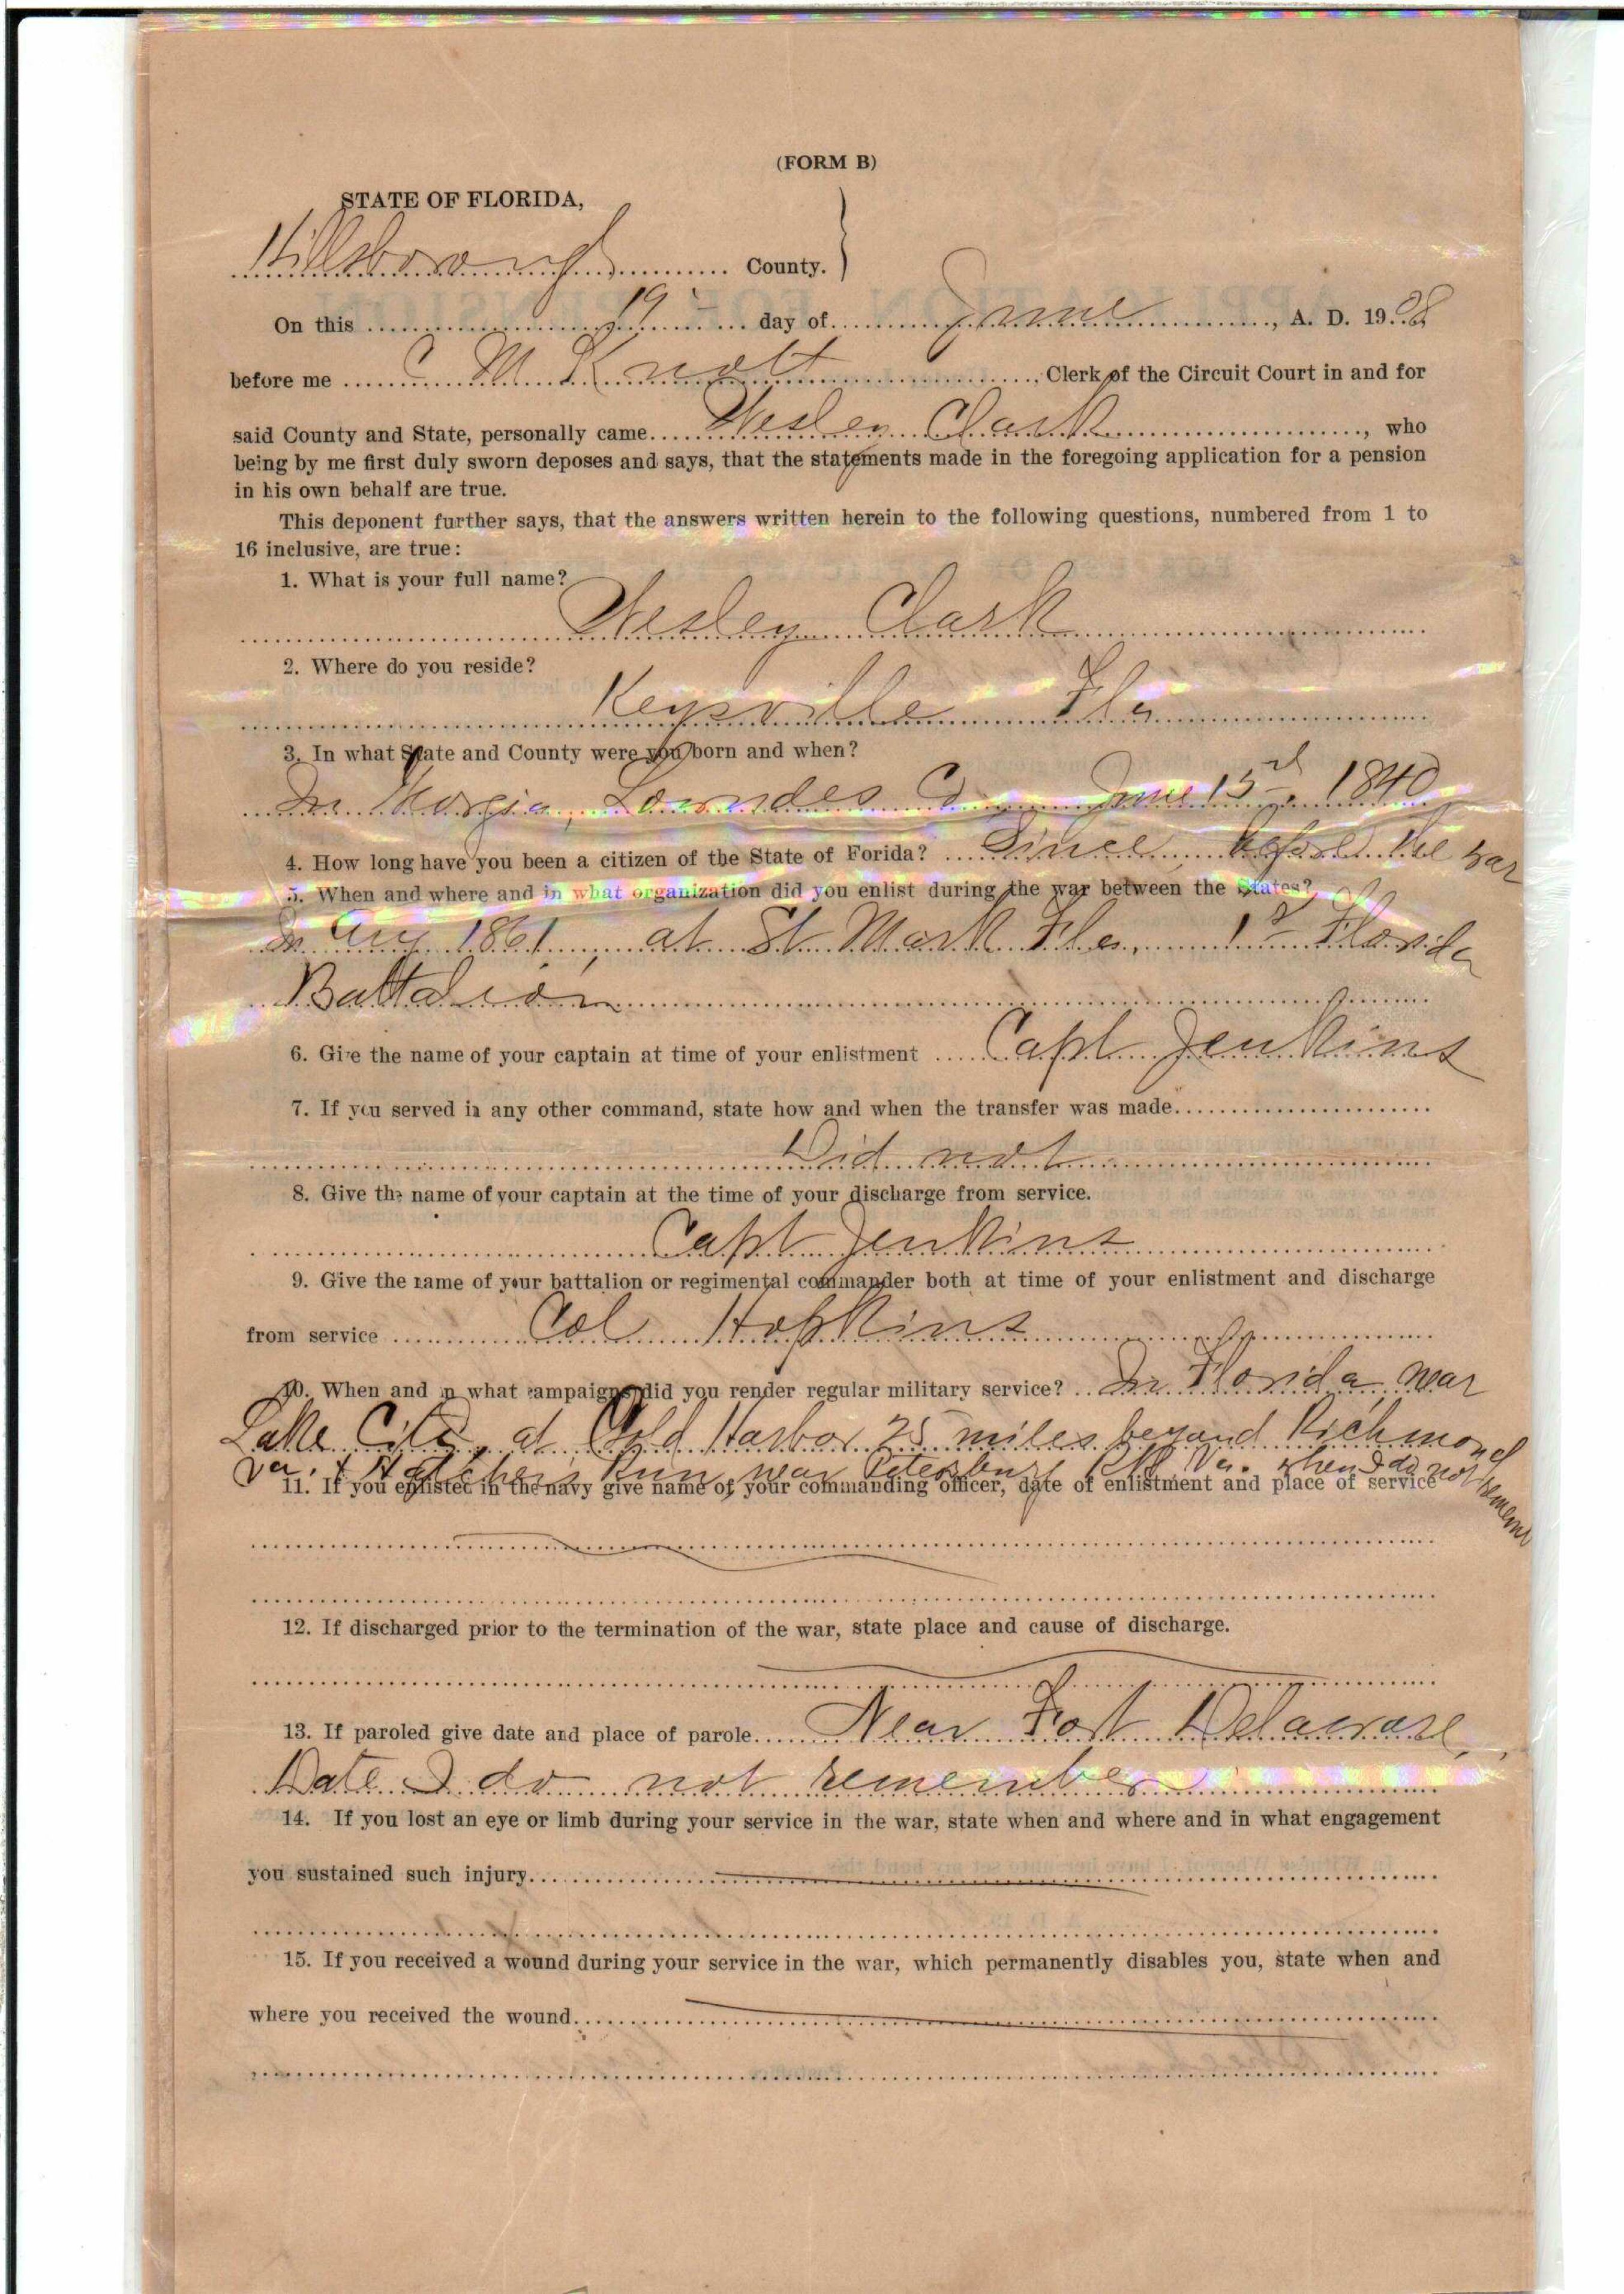 (FORM B)
STATE OF FLORIDA,
Hillsborough County.
On this 19 day of June, A. D. 1908
before me C M Knott, Clerk of the Circuit Court in and for
said County and State, personally came Wesley Clark, who
being by me first duly sworn deposes and says, that the statements made in the foregoing application for a pension
in his own behalf are true.
This deponent further says, that the answers written herein to the following questions, numbered from 1 to
16 inclusive, are true:
1. What is your full name?
Wesley Clark
2. Where do you reside?
Keysville Fla
3. In what State and County were you born and when?
In Georgia, Lowndes Co June 15 1840
4. How long have you been a citizen of the State of Forida? Since before the war
5. When and where and in what organization did you enlist during the war between the States?
In Aug 1861, at St Mark Fla, 1st Florida
Battalion
6. Give the name of your captain at time of your enlistment Capt Jenkins
7. If you served in any other command, state how and when the transfer was made.
Did not
8. Give the name of your captain at the time of your discharge from service.
Capt Jenkins
9. Give the name of your battalion or regimental commander both at time of your enlistment and discharge
from service Col Hopkins
10. When and in what campaigns did you render regular military service? In Florida, near
Lake City, at Cold Harbor 25 miles beyond Richmond
Va. & Hatchers Run near Petersburg Va. when I do not remember
11. If you enlisted in the navy give name of your commanding officer, date of enlistment and place of service
12. If discharged prior to the termination of the war, state place and cause of discharge.
13. If paroled give date and place of parole Near Fort Delaware,
Date I do not remember
14. If you lost an eye or limb during your service in the war, state when and where and in what engagement
you sustained such injury.
15. If you received a wound during your service in the war, which permanently disables you, state when and
where you received the wound.